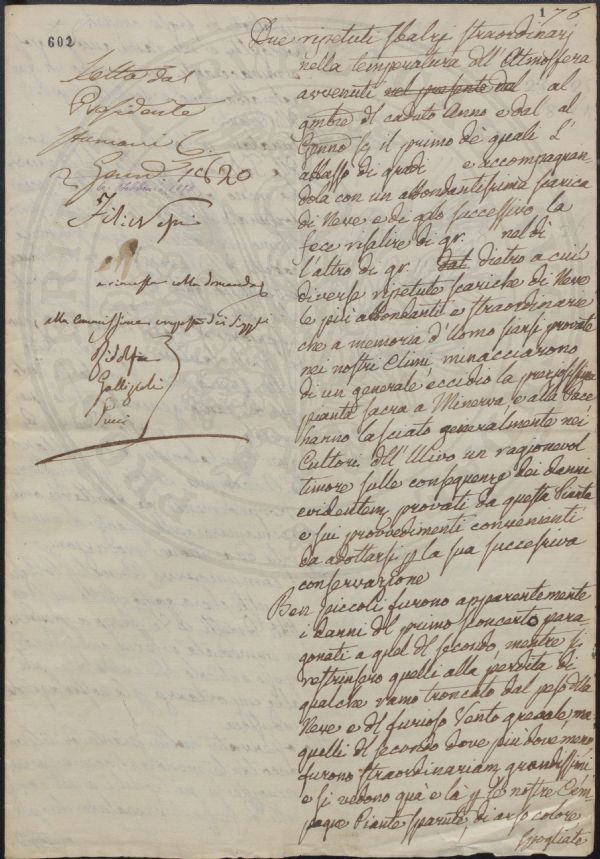 602
1 76
Letta dal
Presidente
2 1820
a rimessa colla domanda
alla Commissione composta dei Sigg.
Ridolfi
Gallizioli
Pucci
Due ripetuti sbalzi straordinarj
nella temperatura dell' Atmosfera
avvenuti nel presente dal al
Xmbre del caduto Anno e dal al
Genno il primo de' quali l'
abbasso di gradi e accompagnan-
dola con un abbondantissima scarica
di Neve e di gelo successivo la
fece risalire di gr. nel dì
l'altro di gr. dal dietro a cui
diverse ripetute scariche di Neve
le più abbondanti e straordinarie
che a memoria d'Uomo siansi provate
nei nostri Climi, minacciarono
di un generale eccidio la preziosissima
pianta sacra a Minerva, e alla Pace
hanno lasciato generalmente nei
Cultori dell' Ulivo un ragionevol
timore sulle conseguenze dei danni
evidentem. provati da questa Pianta
e sui provvedimenti convenienti
da adottarsi p la sua successiva
conservazione
Ben piccoli furono apparentemente
i danni del primo sconcerto para-
gonati a quel del secondo, mentre si
restrinsero quelli alla perdita di
qualche ramo troncato dal peso della
Neve e del furioso Vento grecale, ma
quelli del secondo dove più dove meno
furono straordinariam. grandissimi
e si vedono quà e là p le nostre Cam-
pagne Piante sparute, di arso colore
spogliate